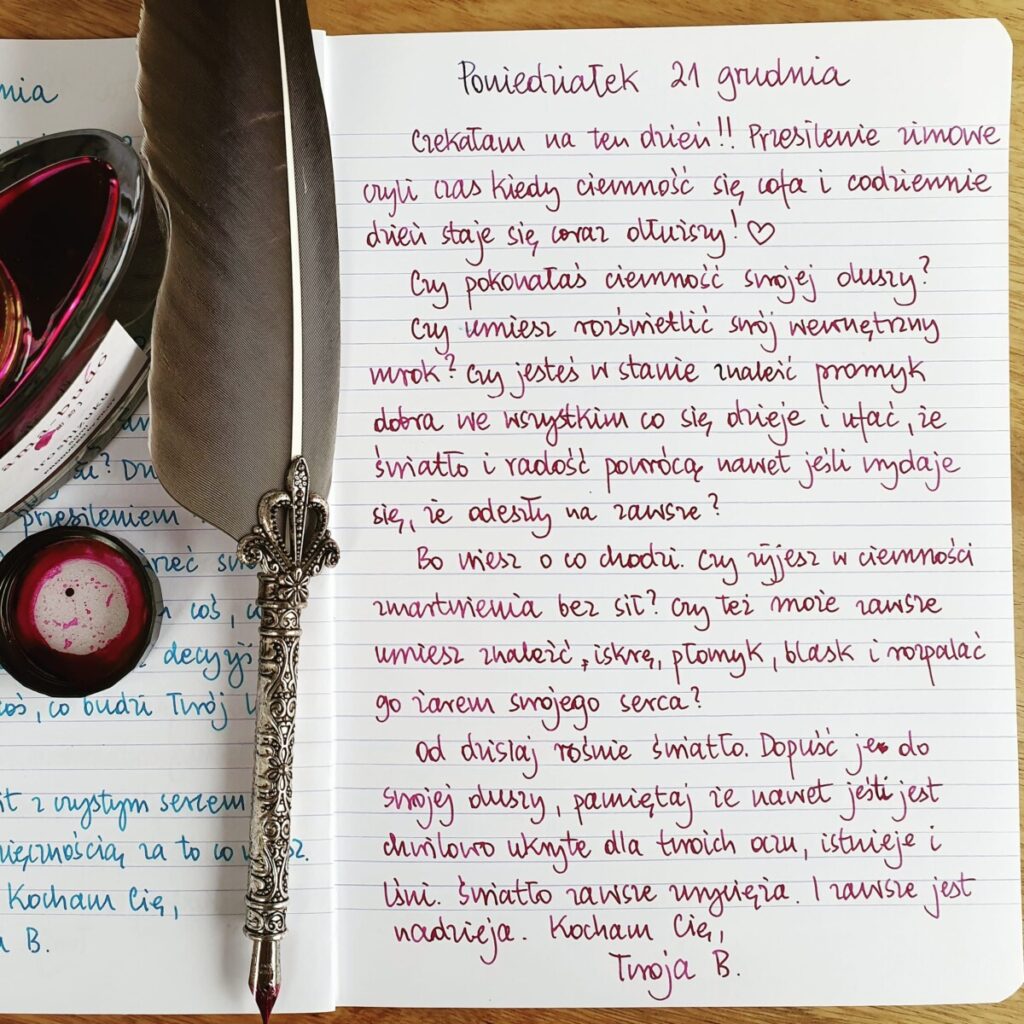 nia
przesileniem
coś, 
decyzj
coś, co budzi Twój
z czystym sercem
za to co
Kocham Cię,
B.
Poniedziałek 21 grudnia
Czekałam na ten dzień!! Przesilenie zimowe
czyli czas kiedy ciemność się cofa i codziennie
dzień staje się coraz dłuższy! ♡
Czy pokonałaś ciemność swojej duszy?
Czy umiesz rozświetlić swój wewnętrzny
mrok? Czy jesteś w stanie znaleźć promyk
dobra we wszystkim co się dzieje i ufać, że
światło i radość powrócą nawet jeśli wydaje
się, że odeszły na zawsze?
Bo wiesz o co chodzi. Czy żyjesz w ciemności
zmartwienia bez sił? Czy też może zawsze
umiesz znaleźć, iskrę, płomyk, blask i rozpalać
go żarem swojego serca?
Od dzisiaj rośnie światło. Dopuść je do
swojej duszy, pamiętaj że nawet jeśli jest
chwilowo ukryte dla twoich oczu, istnieje i
lśni. Światło zawsze zwycięża. I zawsze jest
nadzieja. Kocham Cię,
Twoja B.